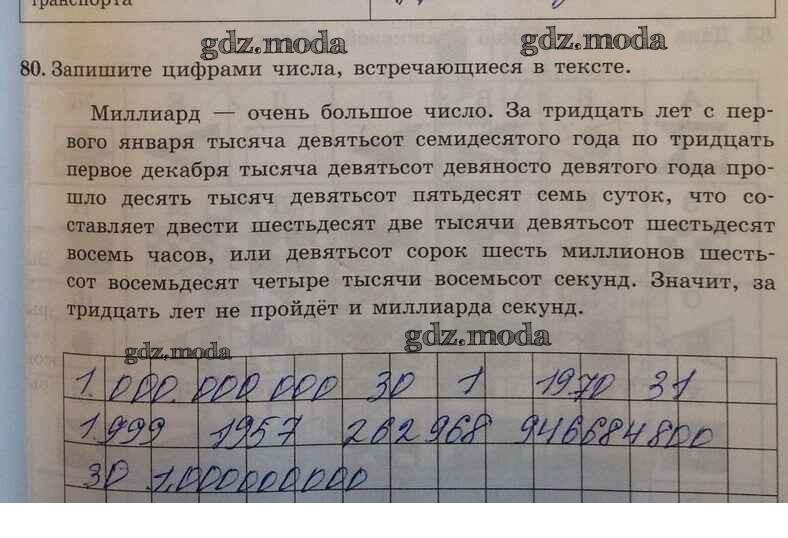 транспорта
gdz.moda gdz.moda
80. Запишите цифрами числа, встречающиеся в тексте.
Миллиард — очень большое число. За тридцать лет с пер-
вого января тысяча девятьсот семидесятого года по тридцать
первое декабря тысяча девятьсот девяносто девятого года про-
шло десять тысяч девятьсот пятьдесят семь суток, что со-
ставляет двести шестьдесят две тысячи девятьсот шестьдесят
восемь часов, или девятьсот сорок шесть миллионов шесть-
сот восемьдесят четыре тысячи восемьсот секунд. Значит, за
тридцать лет не пройдёт и миллиарда секунд.
gdz.moda gdz.moda
1.000.000.000 30 1 1970 31
1.999 1957 262968 946684800
30 1.000000000